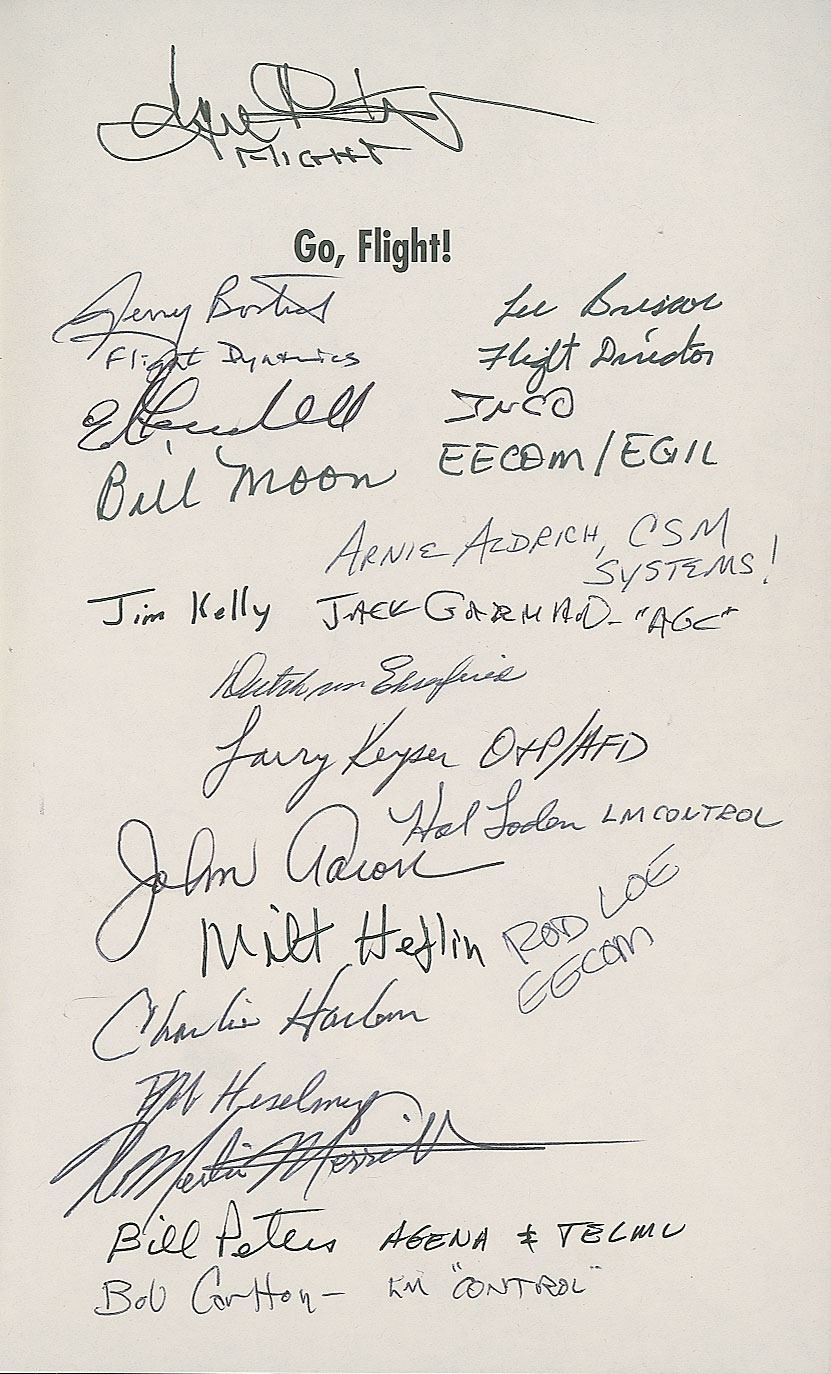 FLIGHT
Go, Flight!
Jerry Bostick
Flight Dynamics
Lee Briscoe
Flight Director
Ed Fendell INCO
Bill Moon EECOM/EGIL
ARNIE ALDRICH, CSM
SYSTEMS!
Jim Kelly JACK GARMAN - "AGC"
Dutch von Ehrenfried
Larry Keyser O&P/AFD
Hal Loden LM CONTROL
John Aaron
Milt Heflin
ROD LOE
EECOM
Charlie Harlan
Bob Heselmeyer
Merlin Merritt
Bill Peters AGENA & TELMU
Bob Carlton - LM "CONTROL"